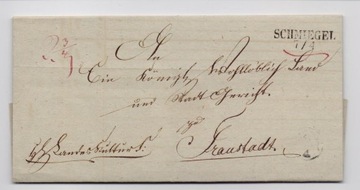 SCHMIEGEL
7/4
An
Ein Königl. Wohllöblich Land
und Stadt Gericht.
zu
Fraustadt.